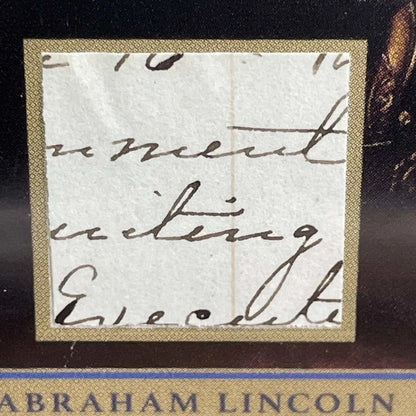 nment
writing
Execute
ABRAHAM LINCOLN